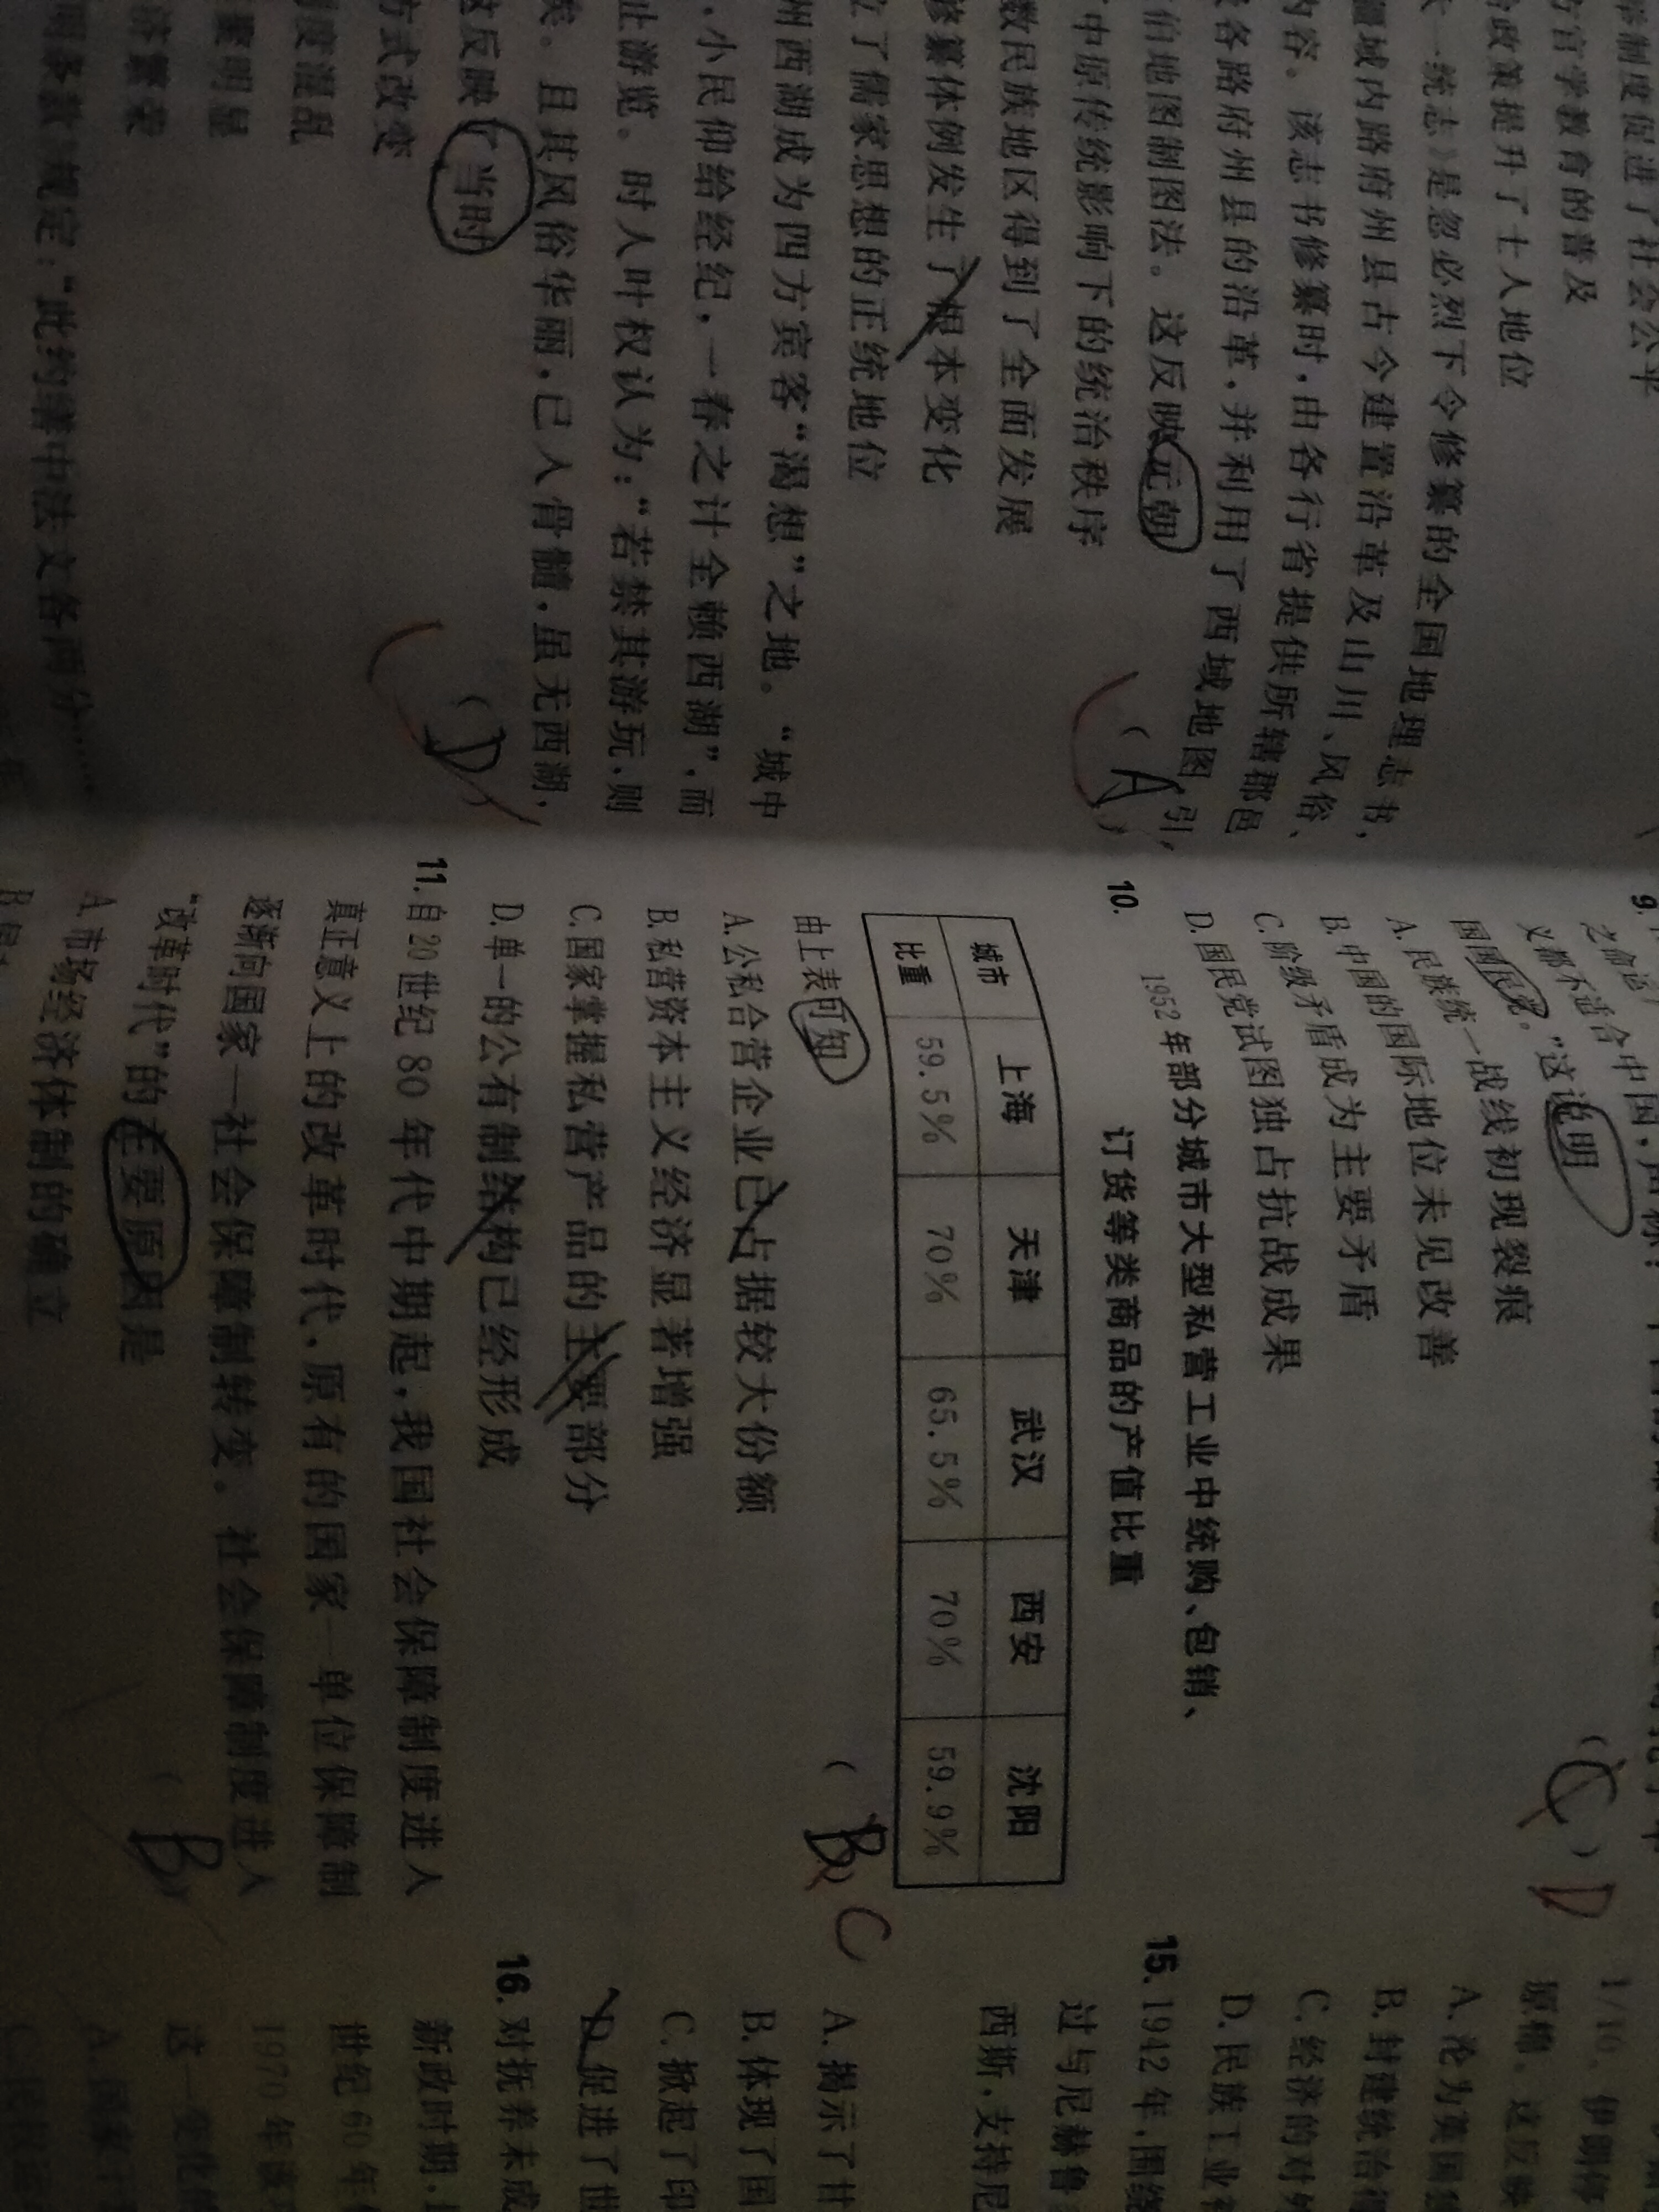 帝制度促进了社会公平
方官学教育的普及
政策提升了士人地位
大一统志》是忽必烈下令修纂的全国地理志书,
疆域内路府州县古今建置沿革及山川、风俗、
内容。该志书修纂时,由各行省提供所辖郡邑
各路府州县的沿革,并利用了西域地图
伯地图制图法。这反映元朝
中原传统影响下的统治秩序
( A )
数民族地区得到了全面发展
修纂体例发生了根本变化
立了儒家思想的正统地位
州西湖成为四方宾客“渴想”之地。“城中
、小民仰给经纪,一春之计全赖西湖”,而
止游览。时人叶权认为:“若禁其游玩,则
矣。且其风俗华丽,已入骨髓,虽无西湖,
这反映了当时
( D )
方式改变
度混乱
明显
济繁荣
规定:“此约缮中法文各两分……
9.
之命运》
义都不适合中国,声称:
国国民党。”这说明
( C ) D
A. 民族统一战线初现裂痕
B. 中国的国际地位未见改善
C. 阶级矛盾成为主要矛盾
D. 国民党试图独占抗战成果
10. 1952 年部分城市大型私营工业中统购、包销、
订货等类商品的产值比重
城市 上海 天津 武汉 西安 沈阳
比重 59.5% 70% 65.5% 70% 59.9%
由上表可知 ( B ) C
A. 公私合营企业已占据较大份额
B. 私营资本主义经济显著增强
C. 国家掌握私营产品的主要部分
D. 单一的公有制结构已经形成
11. 自 20 世纪 80 年代中期起,我国社会保障制度进入
真正意义上的改革时代,原有的国家—单位保障制
逐渐向国家—社会保障制转变。社会保障制度进入
“改革时代”的主要原因是 ( B )
A. 市场经济体制的确立
1/10。伊朗
原棉。这反映
A. 沦为英国
B. 封建统治
C. 经济的对外
D. 民族工业
15. 1942 年,围绕
过与尼赫鲁
西斯,支持尼
A. 揭示了甘
B. 体现了国
C. 掀起了印
D. 促进了世
16. 对抚养未成
新政时期,
世纪 60 年代
1970 年该
这一变化
A. 国家干